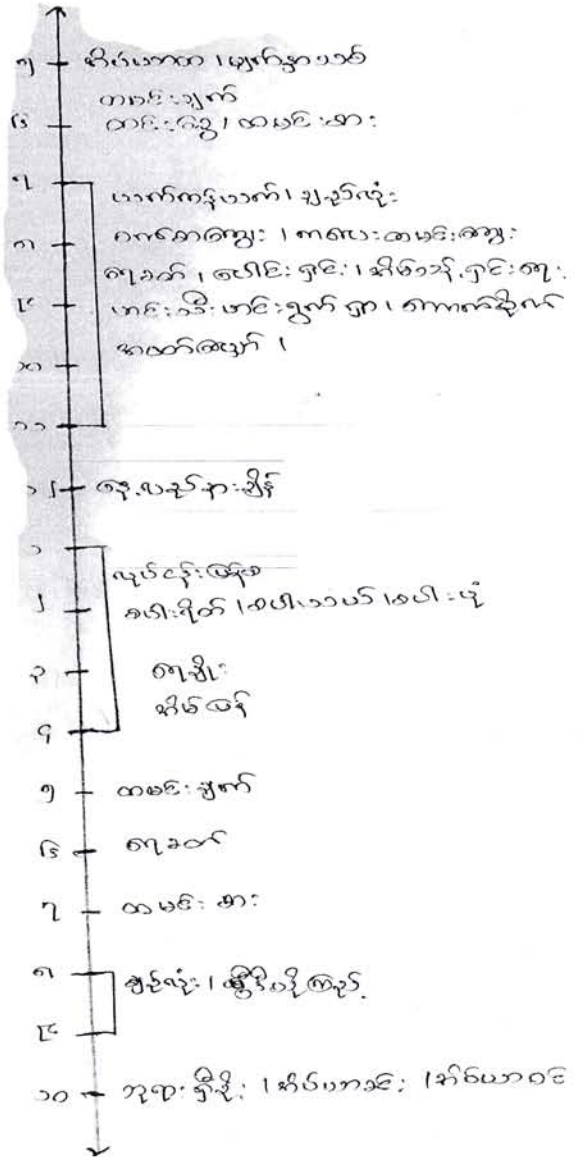 ၅ အိပ်ယာထ ၊ မျက်နှာသစ်
ထမင်းချက်
၆ ၊ ထမင်းစား
၇
ယက်ကန်ယက် ၊ ချည်လုံး
၈ ဝက်စာကျွေး ၊ ကလေးထမင်းကျွေး
ရေခတ် ၊ ပေါင်းရှင်း ၊ အိမ်သန့်ရှင်းရေး
၉ ဟင်းသီးဟင်းရွက် ရှာ ၊ ကောက်စိုက်
၁၀
၁၁
၁၂ နေ့လည်စားချိန်
၁
လုပ်ငန်းပြန်စ
၂ စပါးရိတ် ၊ စပါးသယ် ၊ စပါးပုံ
၃ ရေချိုး
အိမ်ပြန်
၄
၅ ထမင်းချက်
၆ ရေခတ်
၇ ထမင်းစား
၈ ချည်လုံး ၊ တွီဒီယိုကြည့်
၉
၁၀ ဘုရားရှိခိုး ၊ အိပ်ယာခင်း ၊ အိပ်ယာဝင်